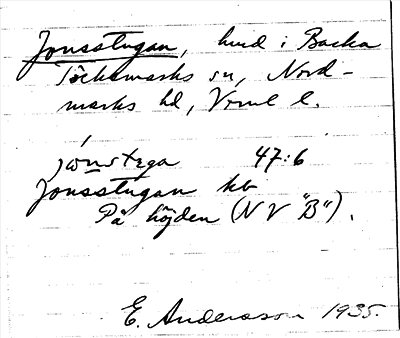 Jonsstugan, hmd i Backa
Töcksmarks sn, Nord-
marks hd, Vrml l.
jωnstɐga 47:6
Jonsstugan kb
På höjden (N V "B").
E. Andersson 1935.